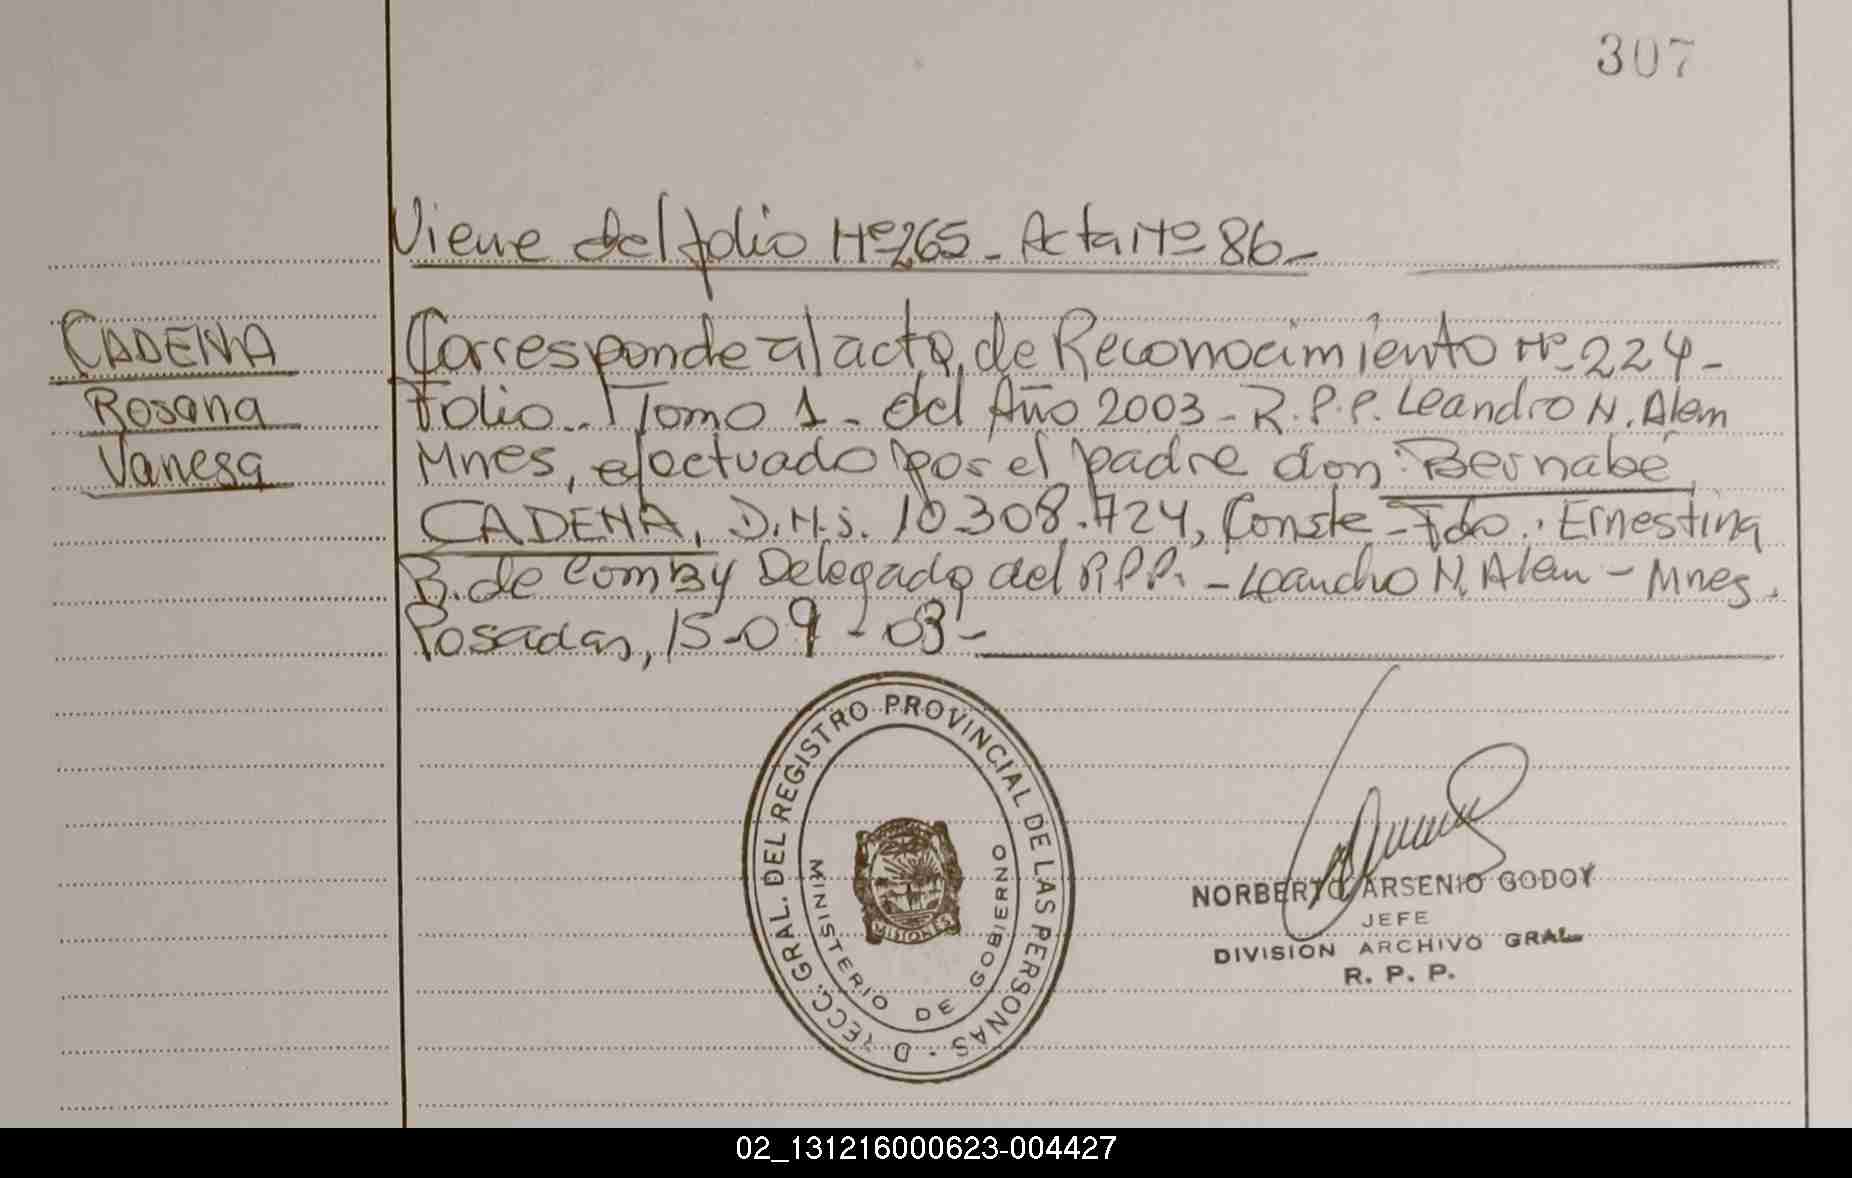 307
Viene del folio Nº 265 - Acta Nº 86 -
CADENA
Rosana
Vanesa
Corresponde al acta de Reconocimiento Nº 224 -
Folio.. Tomo 1 - del Año 2003 - R.P.P. Leandro N. Alem
Mnes, efectuado por el padre don: Bernabé
CADENA, D.N.I. 10.308.724, Conste - Fdo: Ernestina
B. de Comby Delegado del R.P.P. - Leandro N. Alem - Mnes.
Posadas, 15-09-03 -
DRECC. GRAL. DEL REGISTRO PROVINCIAL DE LAS PERSONAS
MINISTERIO DE GOBIERNO
MISIONES
NORBERTO ARSENIO GODOY
JEFE
DIVISION ARCHIVO GRAL
R. P. P.
02_131216000623-004427